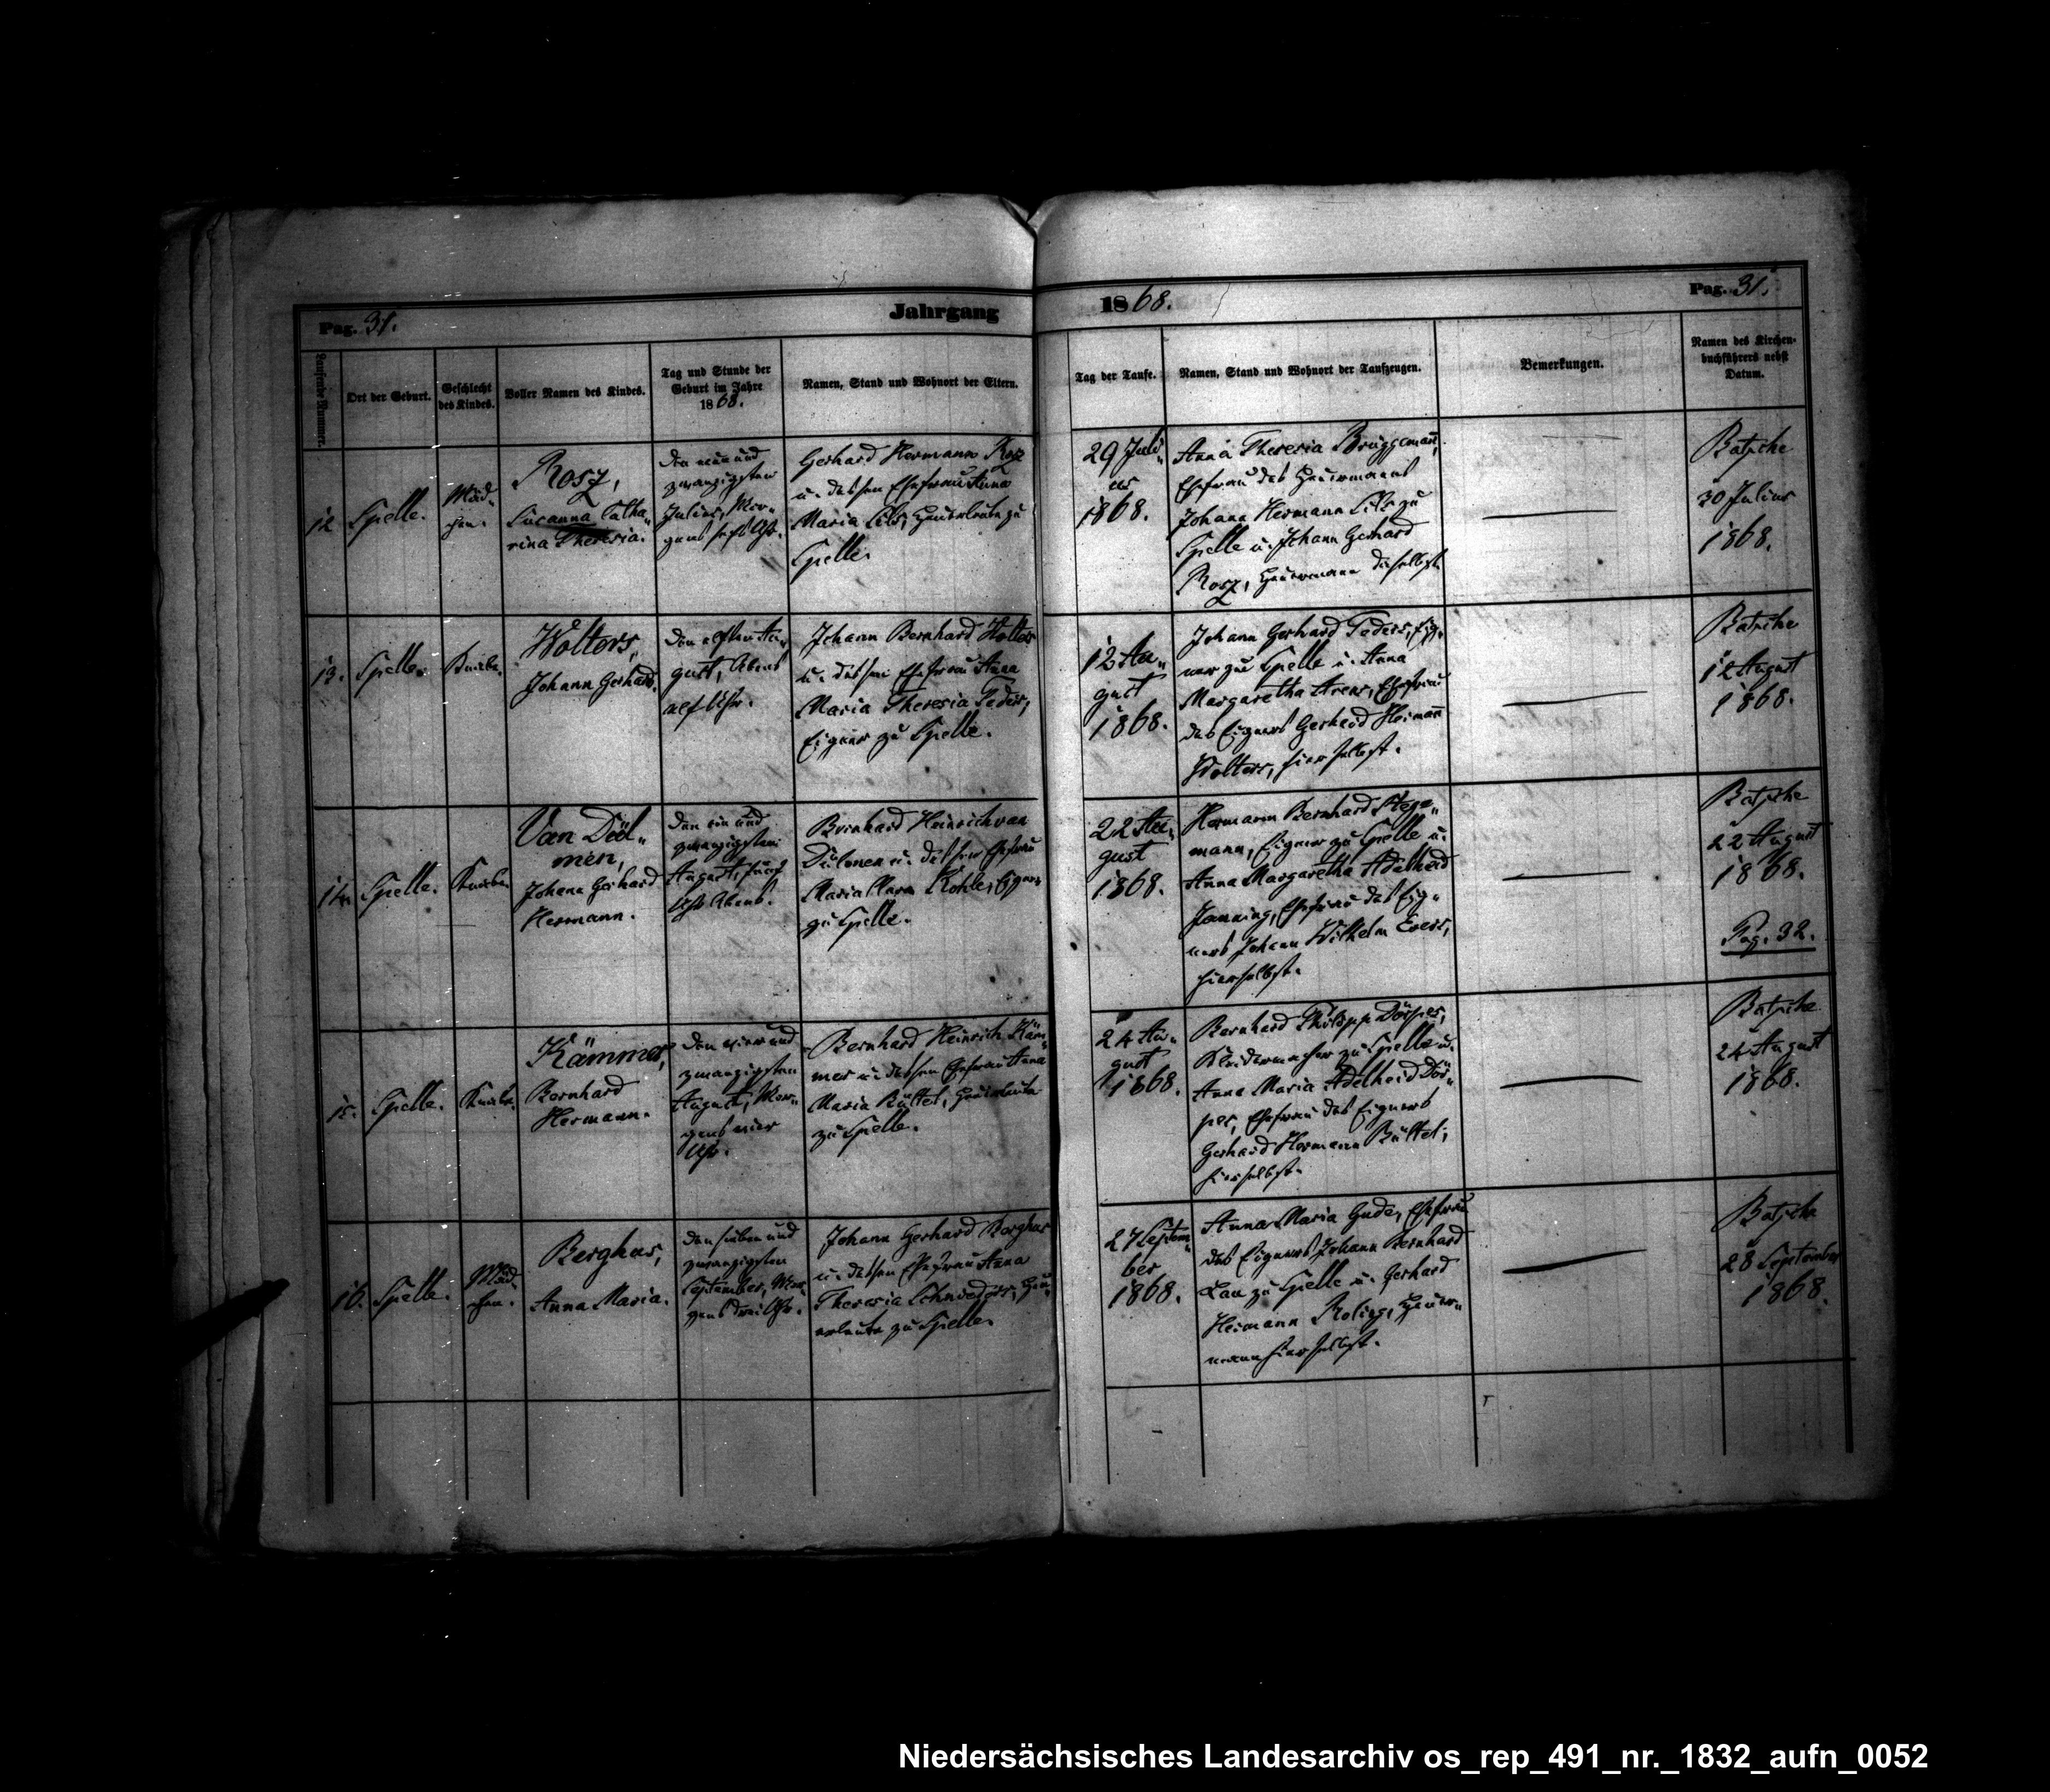 Pag. 31.
Jahrgang
1868.
Pag. 31.
Laufende Nummer.
Ort der Geburt.
Geschlecht
des Kindes.
Voller Namen des Kindes.
Tag und Stunde der
Geburt im Jahre
1868.
Namen, Stand und Wohnort der Eltern.
Tag der Taufe.
Namen, Stand und Wohnort der Taufzeugen.
Bemerkungen.
Namen des Kirchen-
buchführers nebst
Datum.
12
Spelle.
Mäd-
chen.
Rosz,
Susanna Catha-
rina Theresia.
Den neun und
zwanzigsten
Julius, Mor-
gens sechs Uhr.
Gerhard Hermann Rosz
u. dessen Ehefrau Anna
Maria Silz, Heuerleute zu
Spelle.
29 Juli-
us
1868.
Anna Theresia Brüggemann,
Ehefrau des Heuermanns
Johann Hermann Silz zu
Spelle u. Johann Gerhard
Rosz, Heuermann daselbst.
30 Julius
1868.
13.
Spelle.
Knabe.
Wolters,
Johann Gerhard.
Den elften Au-
gust, Abend
elf Uhr.
Johann Bernhard Wolters
u. dessen Ehefrau Anna
Maria Theresia Feders,
Eigner zu Spelle.
12 Au-
gust
1868.
Johann Gerhard Feders, Eig-
ner zu Spelle u. Anna
Margaretha Arens, Ehefrau
des Eigners Gerhard Hermann
Wolters, hierselbst.
12 August
1868.
14.
Spelle.
Knabe.
Van Dül-
men,
Johann Gerhard
Hermann.
Den ein und
zwanzigsten
August, fünf
Uhr Abend.
Bernhard Heinrich van
Dülmen u. dessen Ehefrau
Maria Anna Kohle, Eigner
zu Spelle.
22 Au-
gust
1868.
Hermann Bernhard Stege-
mann, Eigner zu Spelle u.
Anna Margaretha Adelheid
Janning, Ehefrau des Eig-
ners Johann Wilhelm Evers,
hierselbst.
22 August
1868.
Pag. 32.
15.
Spelle.
Knabe.
Kämmer,
Bernhard
Hermann.
Den vier und
zwanzigsten
August, Mor-
gens vier
Uhr.
Bernhard Heinrich Käm-
mer u. dessen Ehefrau Anna
Maria Bültel, Heuerleute
zu Spelle.
24 Au-
gust
1868.
Bernhard Philipp Dörper,
Kleidermacher zu Spelle u.
Anna Maria Adelheid Dör-
per, Ehefrau des Eigners
Gerhard Hermann Bültel,
hierselbst.
24 August
1868.
16.
Spelle.
Mäd-
chen.
Berghus,
Anna Maria.
Den sieben und
zwanzigsten
September, Mor-
gens drei Uhr.
Johann Gerhard Berghus
u. dessen Ehefrau Anna
Theresia Schnieders, Heu-
erleute zu Spelle.
27 Septem-
ber
1868.
Anna Maria Gude, Ehefrau
des Eigners Johann Bernhard
Lau zu Spelle u. Gerhard
Hermann Roling, Heuer-
mann hierselbst.
28 September
1868.
Niedersächsisches Landesarchiv os_rep_491_nr._1832_aufn_0052